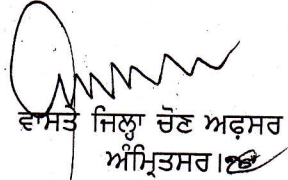 ਵਾਸਤੇ ਜਿਲ੍ਹਾ ਚੋਣ ਅਫ਼ਸਰ
ਅੰਮ੍ਰਿਤਸਰ।